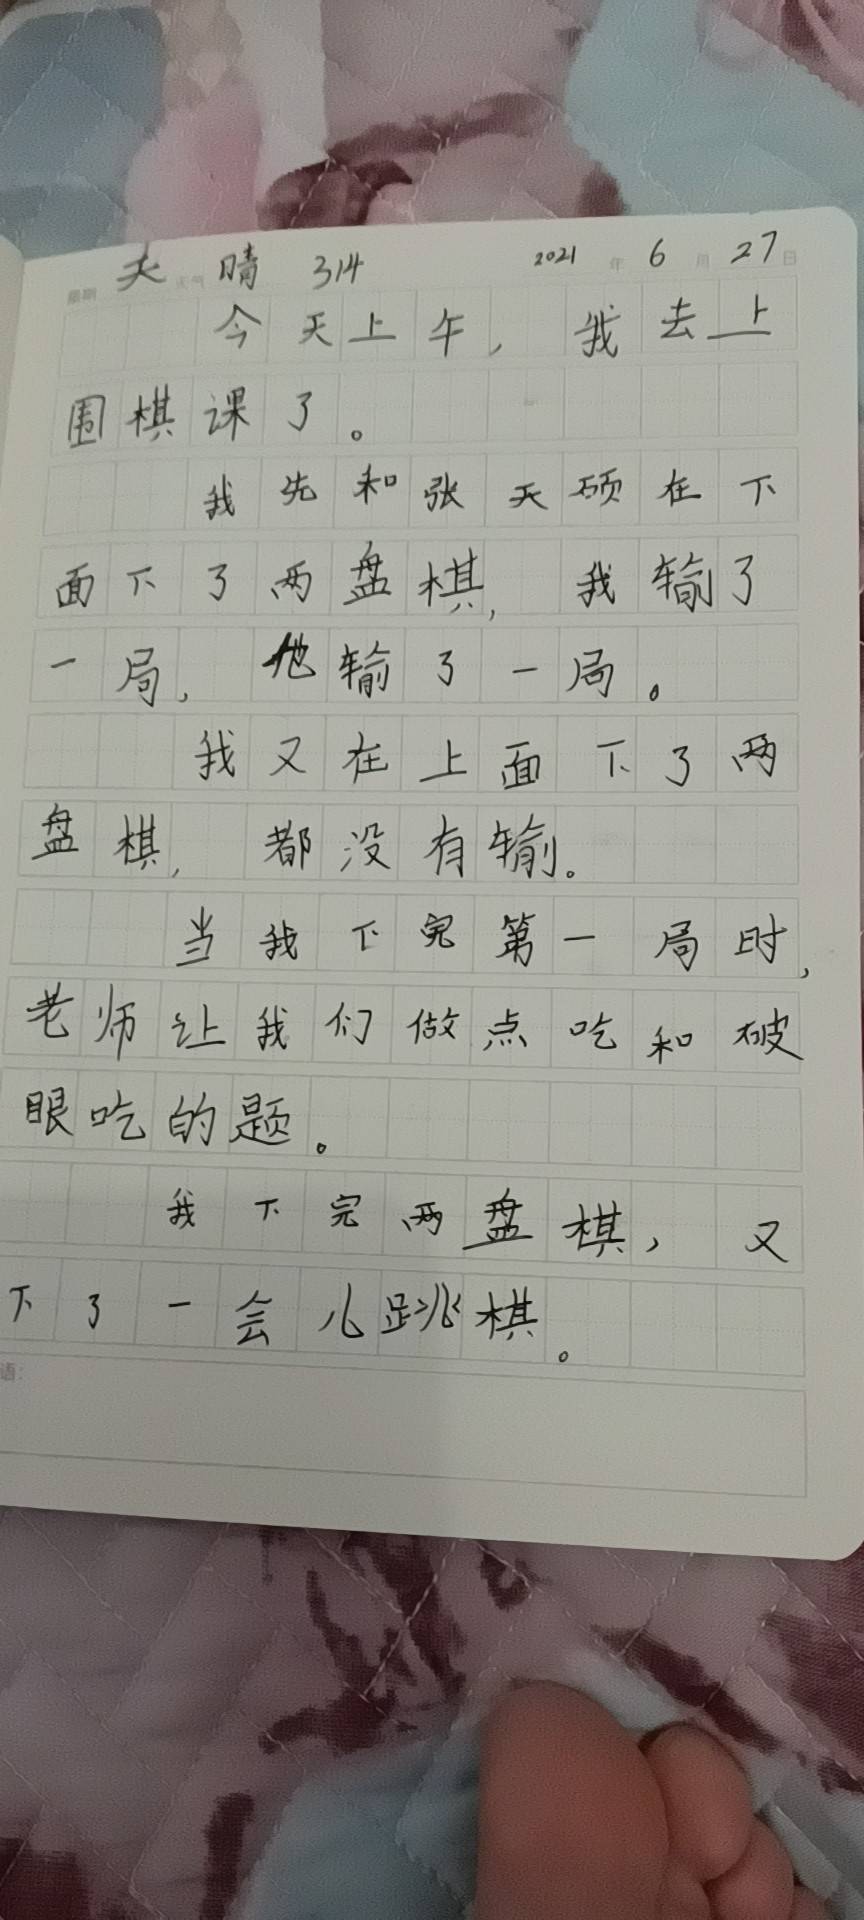 星期 天 天气 晴 314 2021 年 6 月 27 日
今天上午,我去上
围棋课了。
我先和张天硕在下
面下了两盘棋,我输了
一局,他输了一局。
我又在上面下了两
盘棋,都没有输。
当我下完第一局时,
老师让我们做点吃和破
眼吃的题。
我下完两盘棋,又
下了一会儿跳棋。
语: